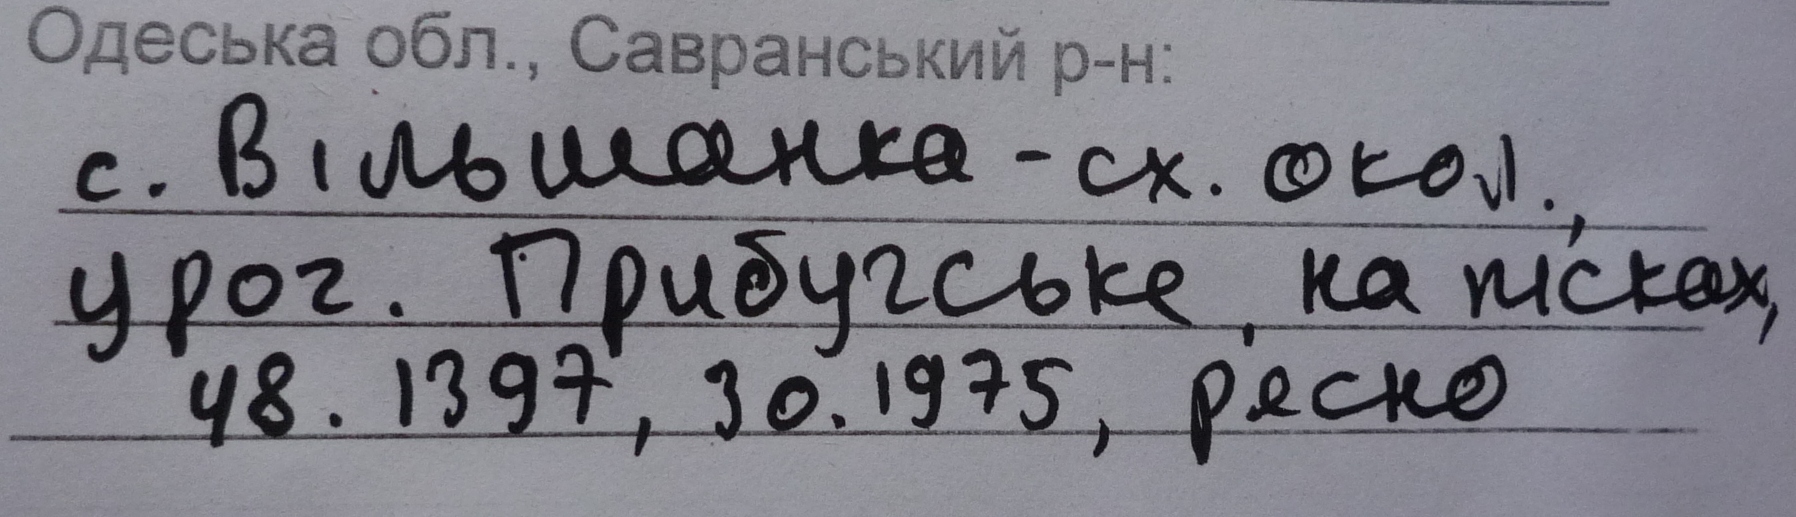 Одеська обл., Савранський р-н:
с. Вільшанка - сх. окол.,
урог. Прибугське, на пісках,
48.1397, 30.1975, рясно